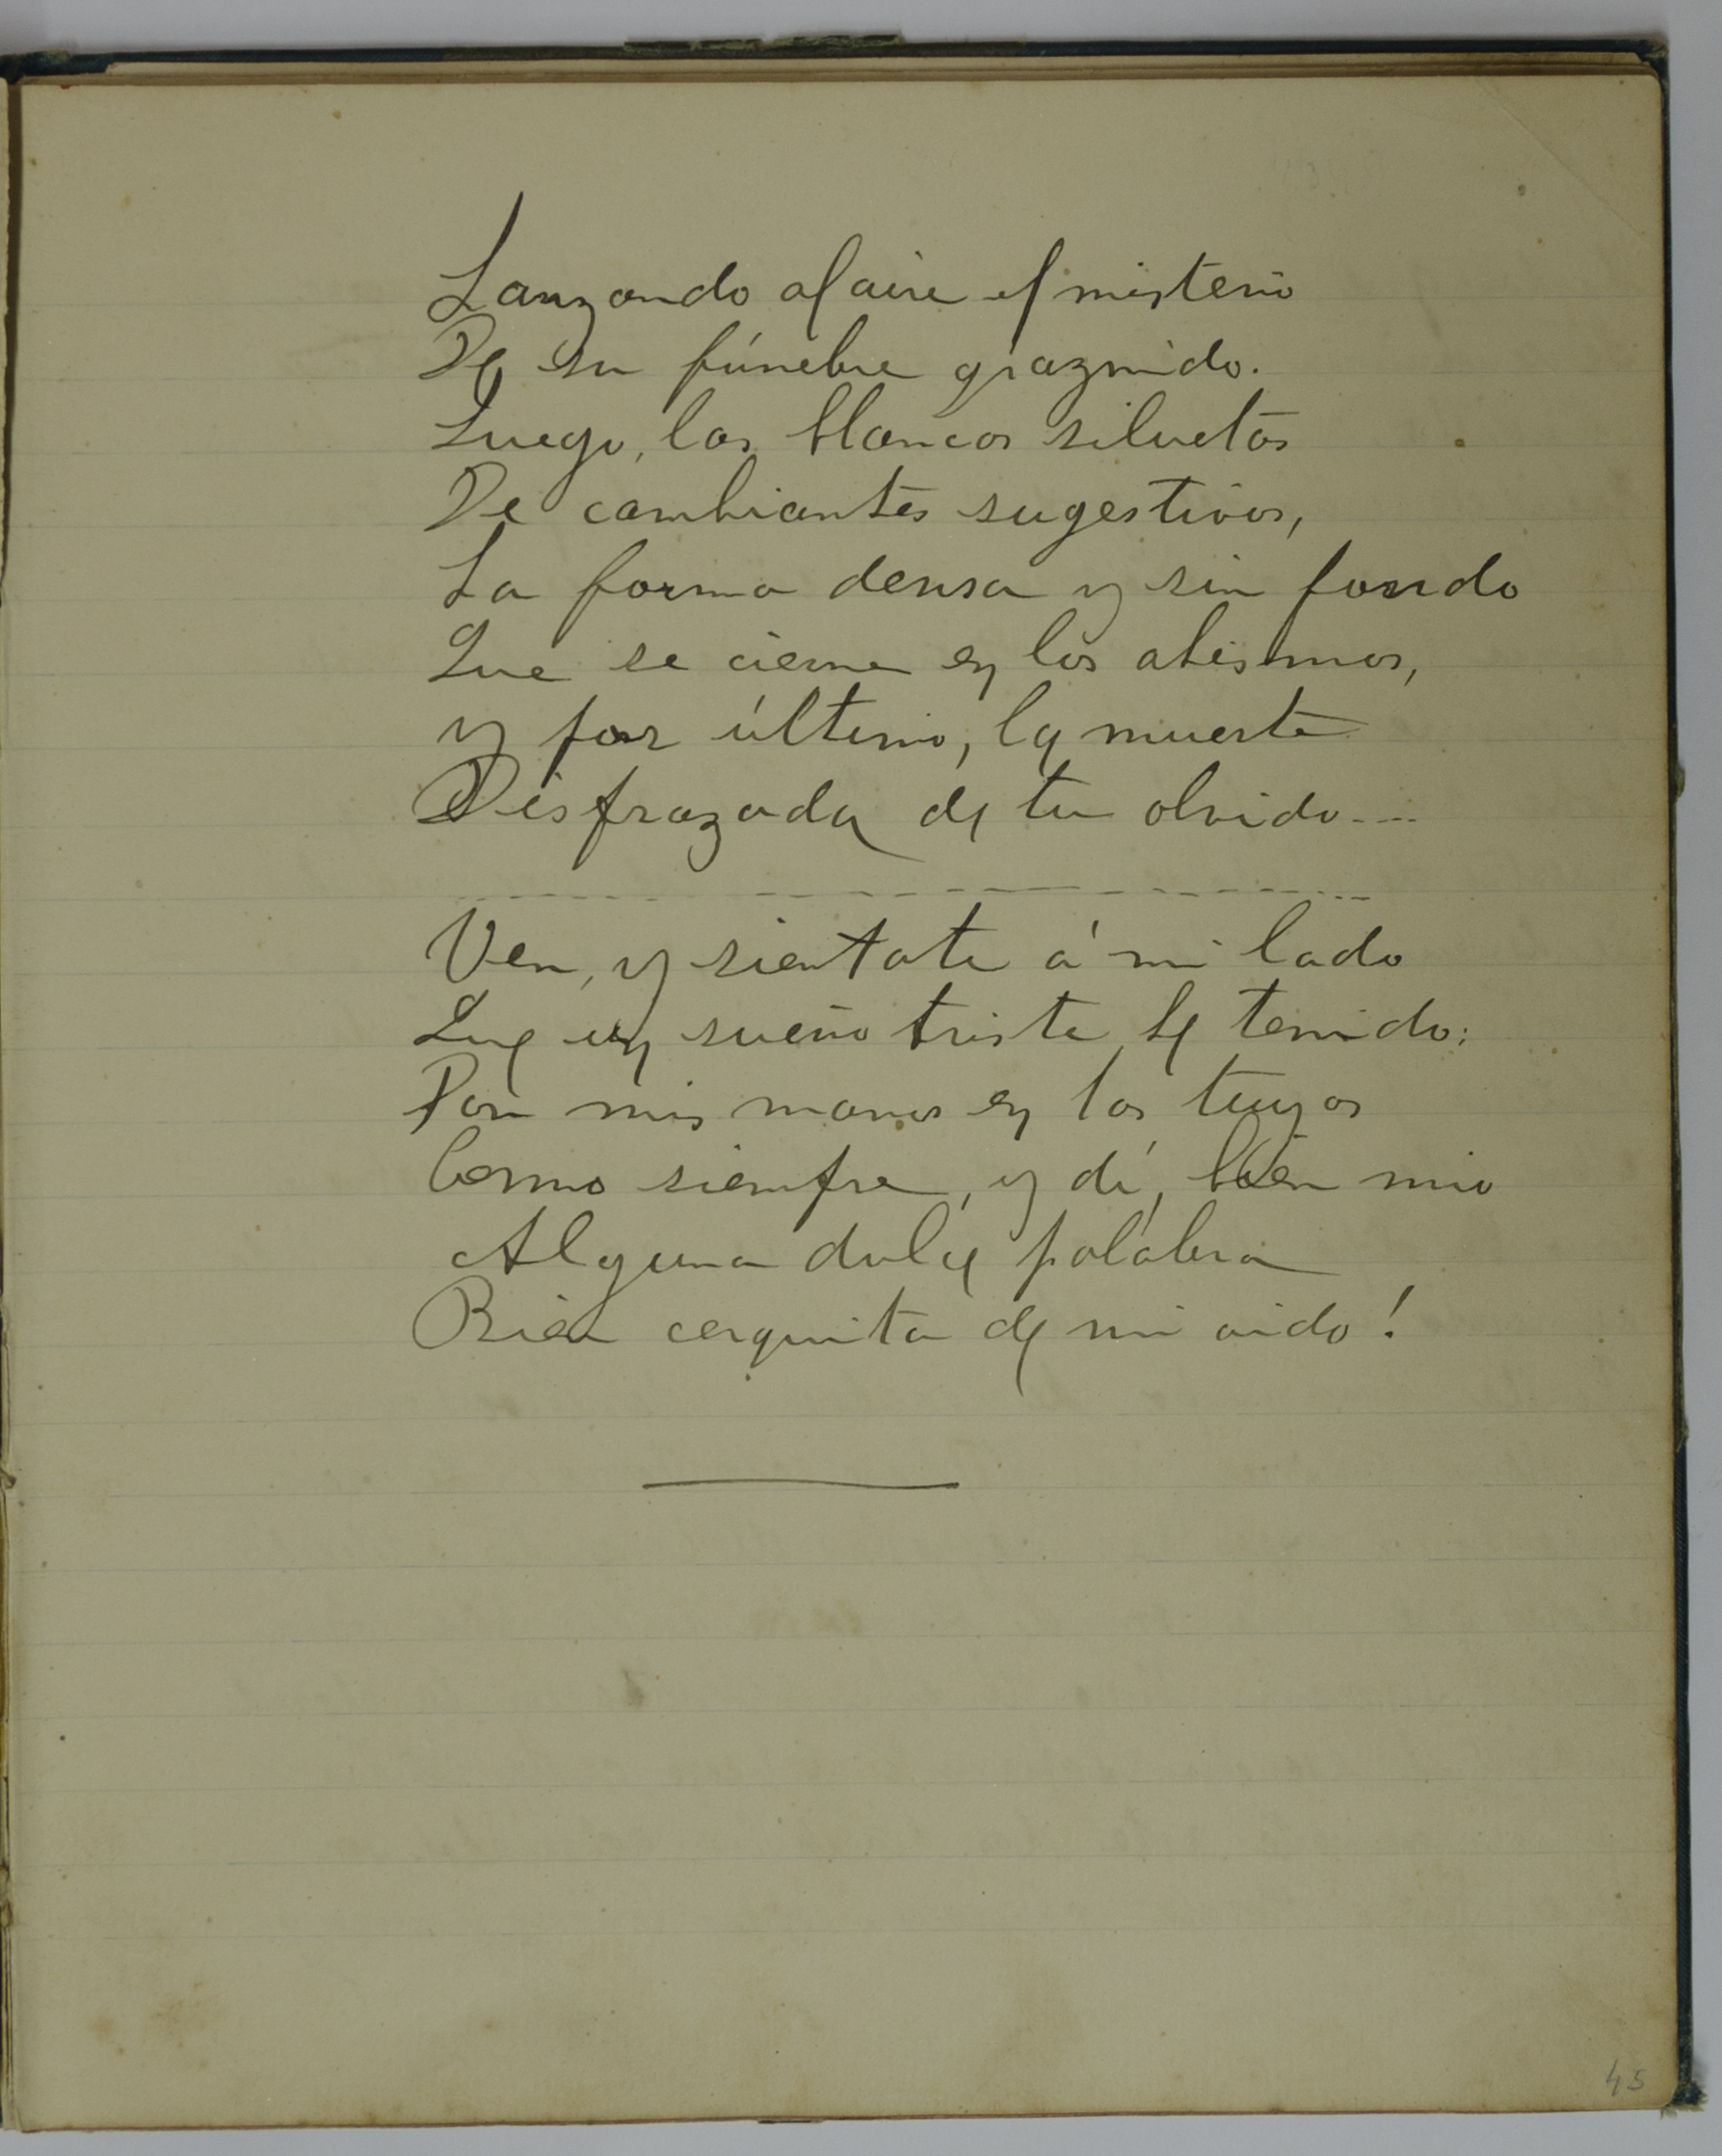 Lanzando al aire el misterio
De su fúnebre graznido.
Luego, las blancas siluetas
De cambiantes sugestivos,
La forma densa y sin fondo
Que se cierne en los abismos,
y por último, la muerte
Disfrazada de tu olvido....
Ven, y sientate á mi lado
Que un sueño triste he tenido:
Pon mis manos en las tuyas
Como siempre, y dí, bien mio
Alguna dulce palabra
Bien cerquita de mi oido!
45